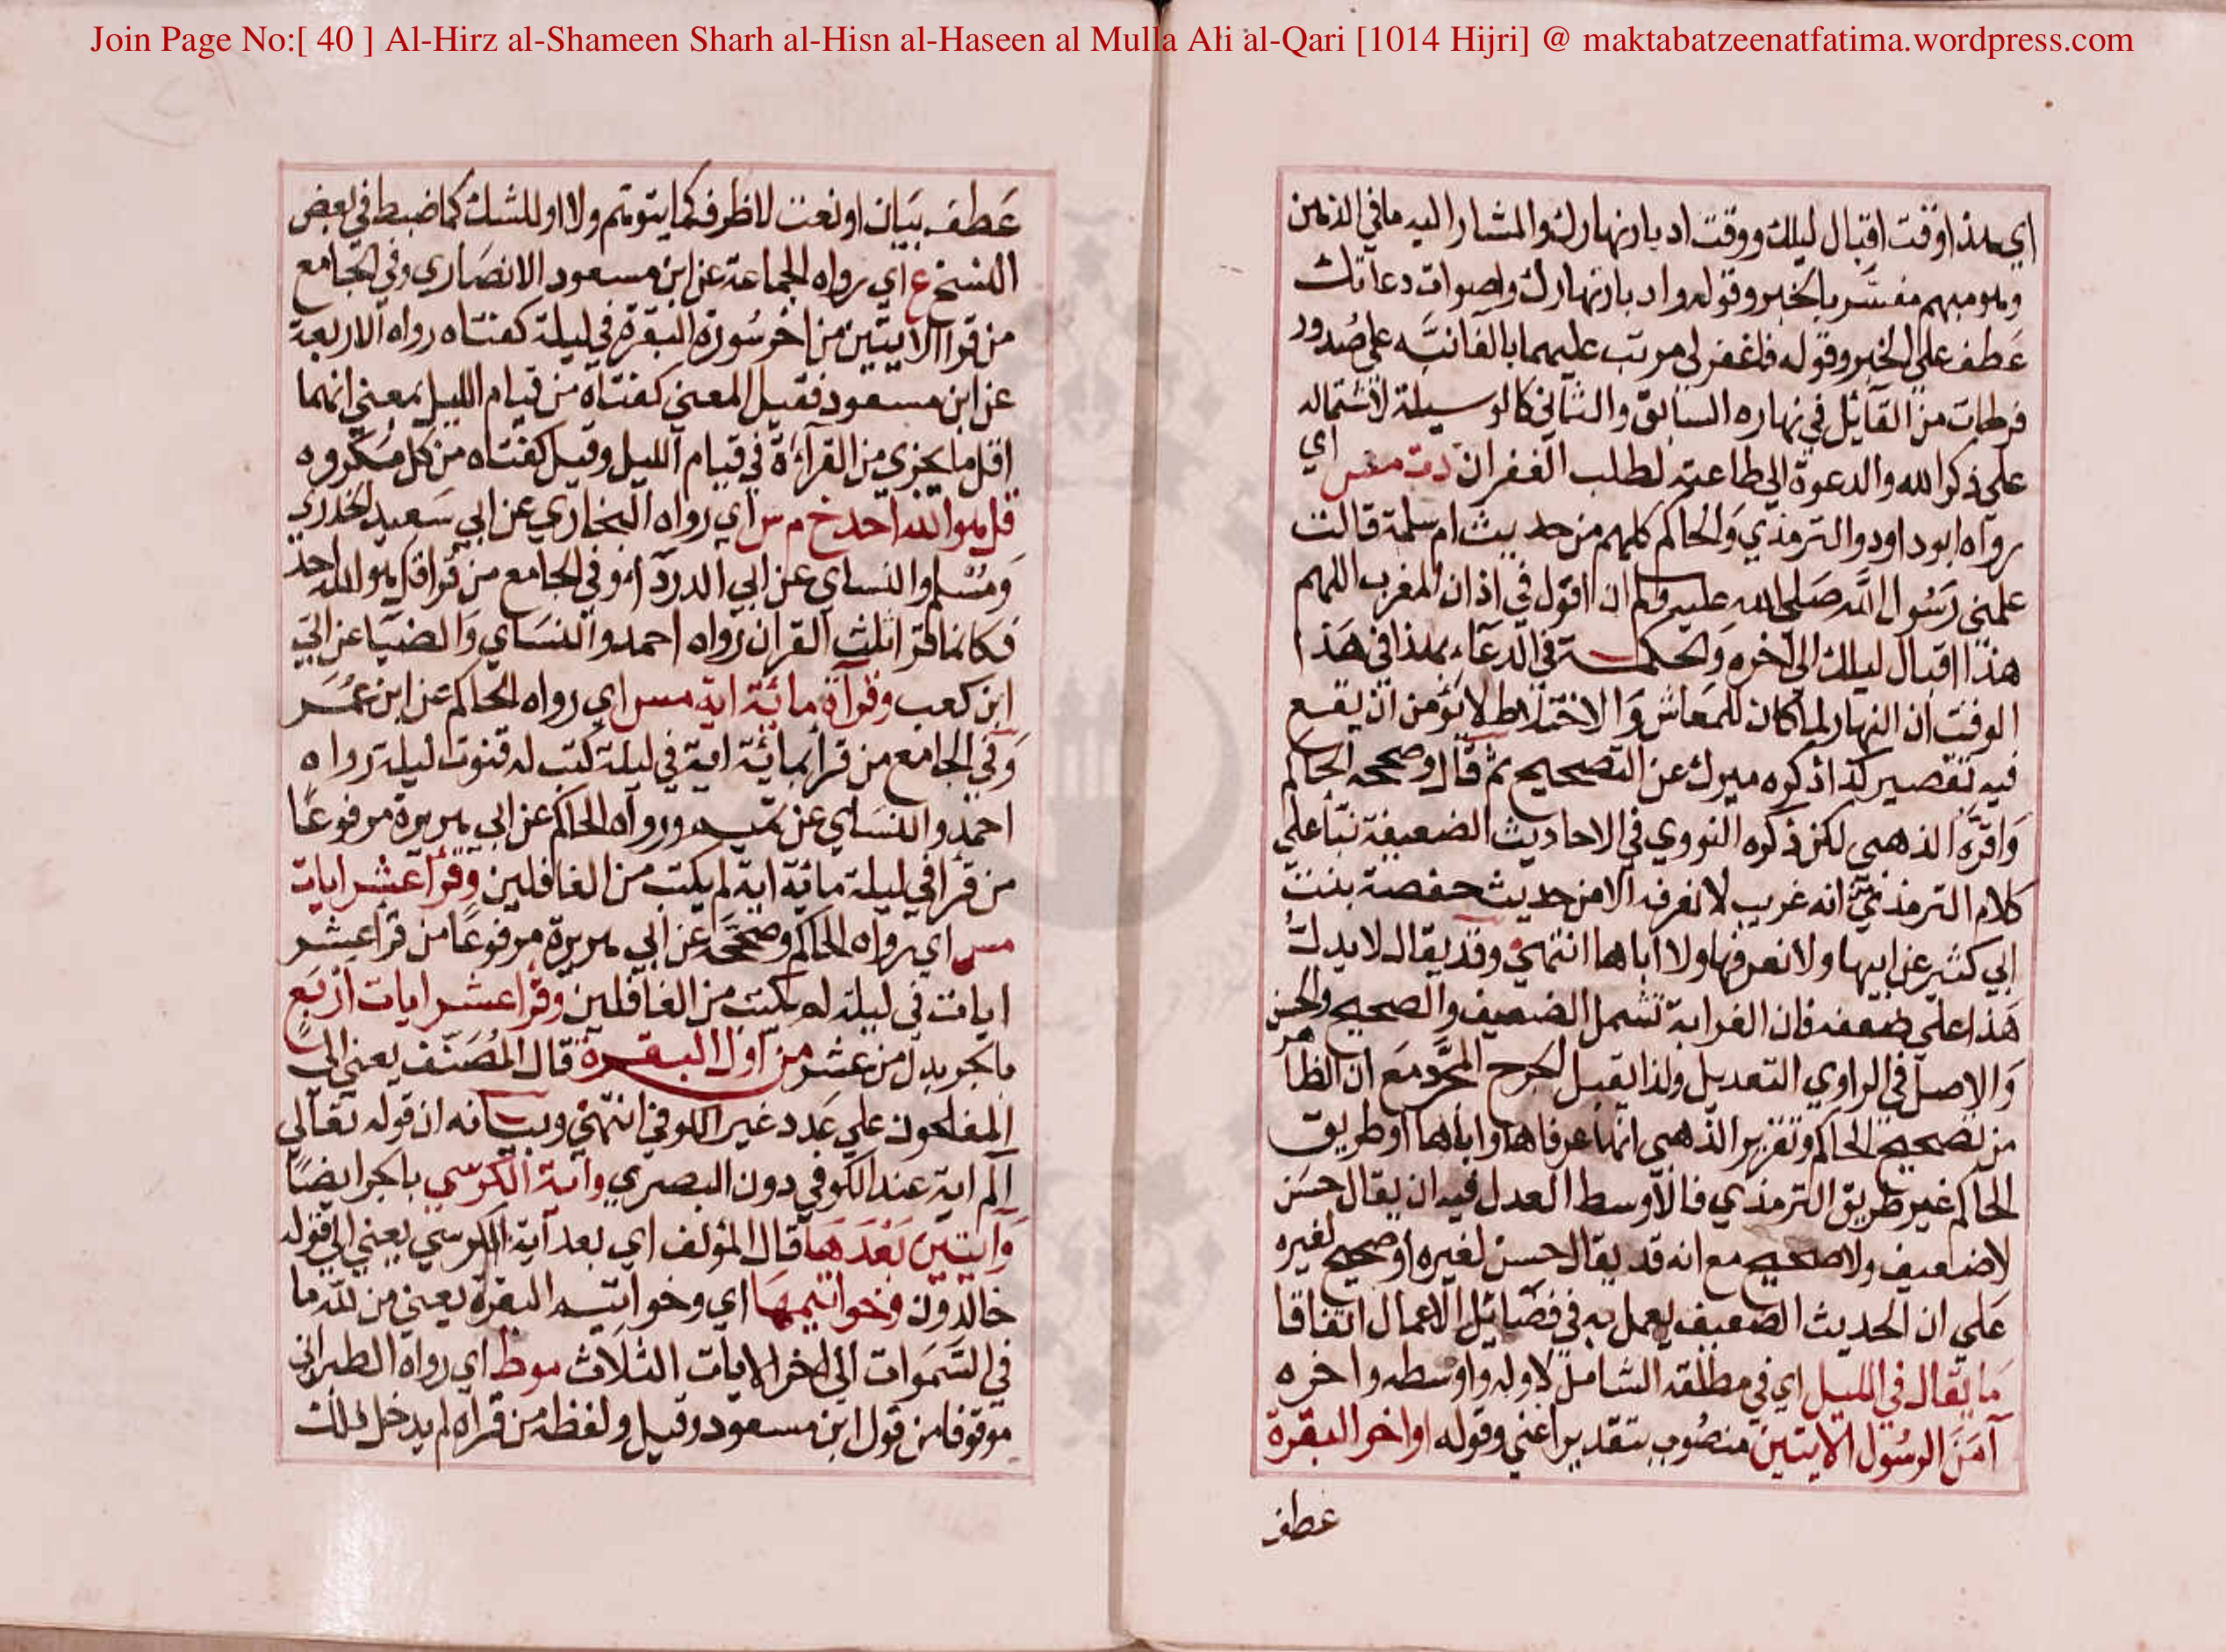 Join Page No:[ 40 ] Al-Hirz al-Shameen Sharh al-Hisn al-Haseen al Mulla Ali al-Qari [1014 Hijri] @ maktabatzeenatfatima.wordpress.com
اي هذا وقت اقبال ليلك ووقت ادبار نهارك والمشار اليه ما في الذهن
وهو مبهم مفسَّر بالخبر وقوله وادبار نهارك واصوات دعاتك
عَطف علي الخبر وقوله فاغفر لي مرتب عليهما بالفا نبَّه علي صُدور
فرطات من القآئل في نهاره السابق والثاني كالوسيلة لاشتماله
علي ذكر الله والدعوة الي طاعته لطلب الغفران دت مس اي
رواه ابو داود والترمذي وَالحاكم كلهم من حديث ام سلمة قالت
علمني رَسُول الله صَلي الله عليه وسلم ان اقول في اذان المغرب اللهم
هذا اقبال ليلك الي اخره وَالحكمة في الدعاء بهذا في هَذا
الوقت ان النهار لما كان للمَعاش وَالاختلاط لا يؤمن ان يقع
فيه تقصير كذا ذكره ميرك عن التصحيح ثم قال وصححه الحاكم
وَاقرَّه الذهبي لكن ذكره النووي في الاحاديث الضعيفة بنآ علي
كلام الترمذي انه غريب لا نعرفه الا من حديث حفصة بنت
ابي كثير عن ابيها ولا نعرفها ولا اباها انتهي وقد يقال لا يدلُّ
هَذا علي ضعفه فان الغرابة تشمل الضعيف والصحيح والحسن
وَالاصل في الراوي التعديل ولذا يقبل الجرح المجرَّد مَع ان الظاهر
من تصحيح الحاكم وتقرير الذهبي انهما عرفاها واباها او طريق
الحاكم غير طريق الترمذي فالاوسط العدل فيه ان يقال حسَن
لا ضعيف ولا صحيح مع انه قد يقال حسن لغيره او صحيح لغيره
عَلي ان الحديث الضعيف يعمل به في فضَآئل الاعمال اتفاقا
مَا يقال في الليل اي في مطلقه الشامل لاوله واوسطه واخره
آمَنَ الرسُول الايتين منصُوب بتقدير اعني وقوله اواخر البقرة
عطف
عَطف بيَان او نعت لا ظرف كما يتوهم ولا او للشك كما ضبط في بعض
النسخ ع اي رواه الجماعة عن ابن مسعود الانصَاري وفي الجَامع
من قرا الايتين من اخر سُورة البقرة في ليلة كفتاه رواه الاربعة
عن ابن مسعود فقيل المعني كفتاه من قيام الليل بمعني انهما
اقل ما يجزي من القرآءة في قيام الليل وقيل كفتاه من كل مكروه
قل هو الله احد خ م س اي رواه البخاري عن ابي سَعيد الخدري
وَمُسْلم والنساي عن ابي الدردآء وفي الجامع من قرا قل هو الله احد
فكانما قرا ثلث القران رواه احمد والنسَاي وَالضيَا عن ابيّ
ابن كعب وقرآة مائة اية مس اي رواه الحاكم عن ابن عُمَر
وَفي الجامع من قرا بمائة اية في ليلة كتب له قنوت ليلة رواه
احمد والنسَاي عن تميم ورواه الحاكم عن ابي هريرة مرفوعًا
من قرا في ليلة مائة اية لم يكتب من الغافلين وقرا عشر ايات
مس اي رواه الحاكم وصححَه عن ابي هريرة مرفوعًا من قرا عشر
ايات في ليلة لم يكتب من الغافلين وقرا عشر ايات اربَع
بالجر بدل من عشر من اول البقرة قال المُصَنّف يعني الي
المفلحون علي عَدد غير الكوفي انتهي وبيانه ان قوله تعَالي
الٓم اية عند الكوفي دون البصري وآية الكرسي بالجر ايضًا
وَآيتين بَعْدَهَا قال المؤلف اي بعد آية الكرسي يعني الي قوله
خالدون وخواتيمهَا اي وخواتيم البقرة يعني من لله ما
في السَّمَوات الي اخر الايات الثلاث موط اي رواه الطبراني
موقوفا من قول ابن مسعود وقيل ولفظه من قراه لم يدخل ذلك